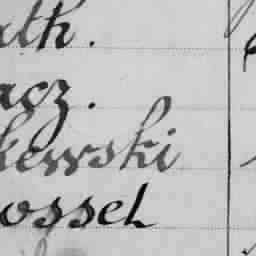 lth.
acz.
kewski
ossel